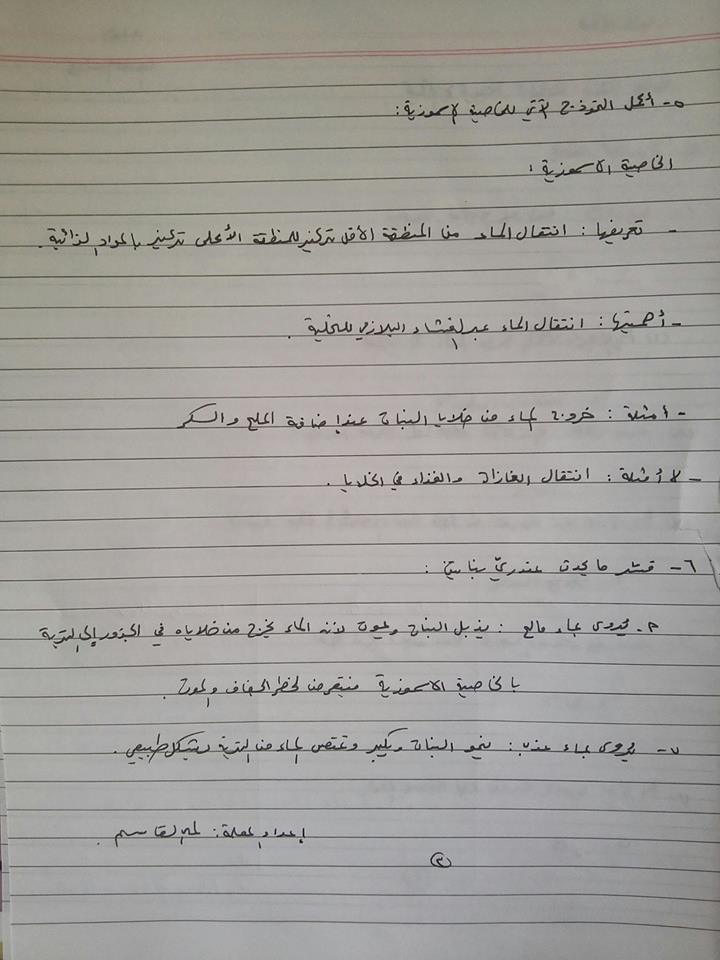 ٥- أكمل النموذج الآتي للخاصية الاسموزية:
الخاصية الاسموزية:
- تعريفها: انتقال الماء من المنطقة الأقل تركيز للمنطقة الأعلى تركيز بالمواد الذائبة.
- أهميتها: انتقال الماء عبر الغشاء البلازمي للخلية.
- أمثلة: خروج الماء من خلايا النبات عند إضافة الملح والسكر
- لا أمثلة: انتقال الغازات والغذاء في الخلايا.
٦- فسّر ما يحدث عند ريّ نباتين:
٢. يروى بماء مالح: يذبل النبات ويموت لأنه الماء يخرج من خلاياه في الجذور إلى التربة
بالخاصية الاسموزية فيتعرض لخطر الجفاف والموت.
٧- يروى بماء عذب: ينمو النبات ويكبر ويمتص الماء من التربة بشكل طبيعي.
إعداد المعلمة: لمى القاسم.
٣